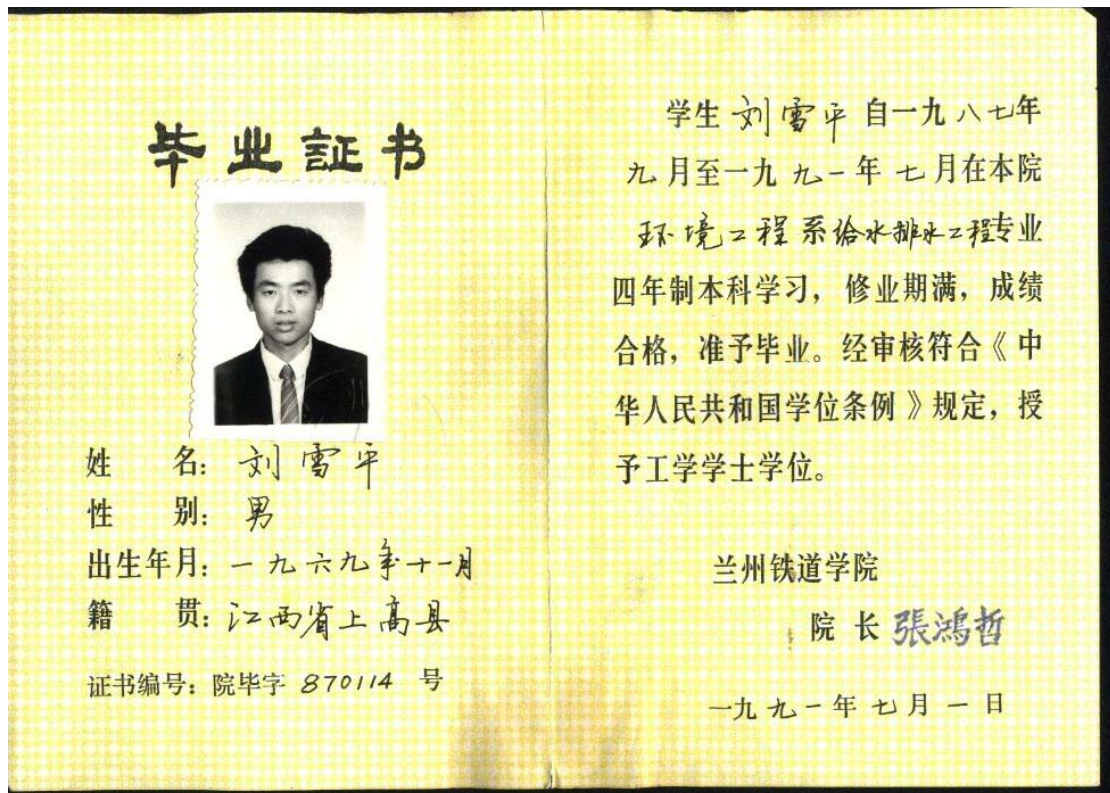 毕业証书
姓 名：刘雪平
性 别：男
出生年月：一九六九年十一月
籍 贯：江西省上高县
证书编号：院毕字 870114 号
学生 刘雪平 自一九八七年
九月至一九九一年七月在本院
环境工程系给水排水工程专业
四年制本科学习，修业期满，成绩
合格，准予毕业。经审核符合《中
华人民共和国学位条例》规定，授
予工学学士学位。
兰州铁道学院
院 长 張鴻哲
一九九一年七月一日